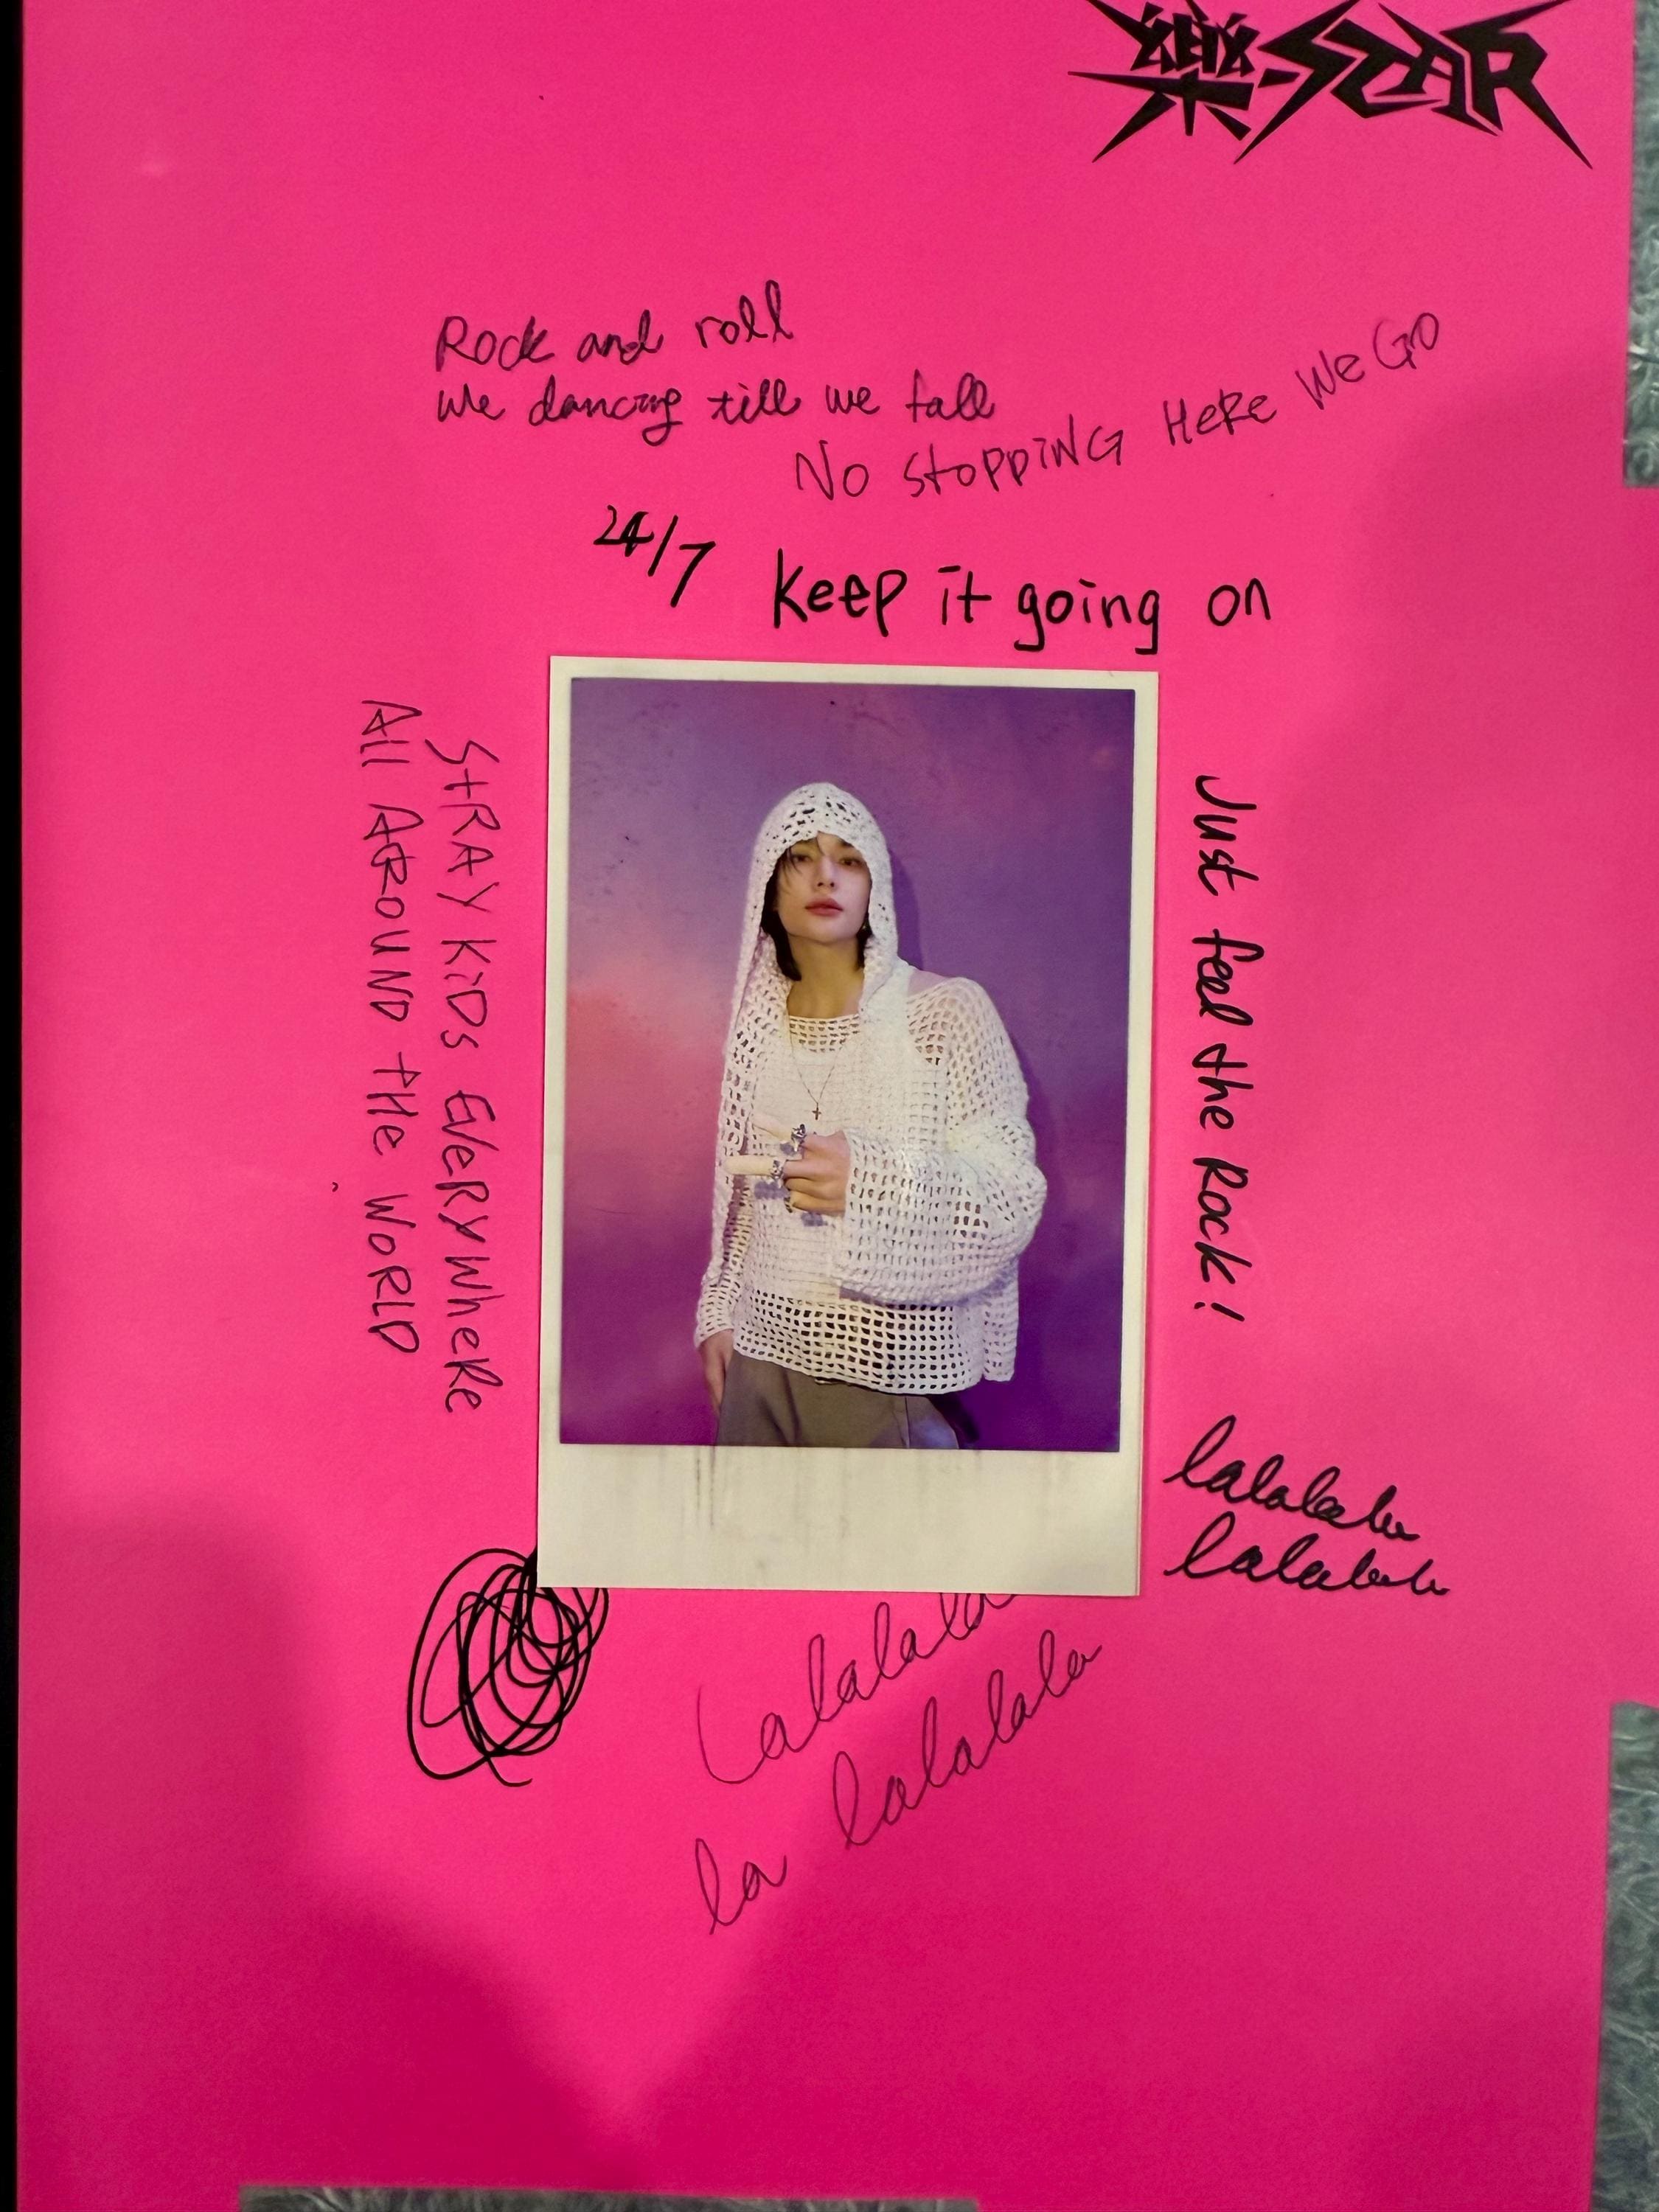 樂-STAR
Rock and roll
We dancing till we fall
No stopping HeRe We GO
24/7 keep it going on
Just feel the Rock!
StRAY KiDs EVeRYWheRe
All ARoUND tHe WoRLD
lalalala
lalalala
Lalalala
la lalalala